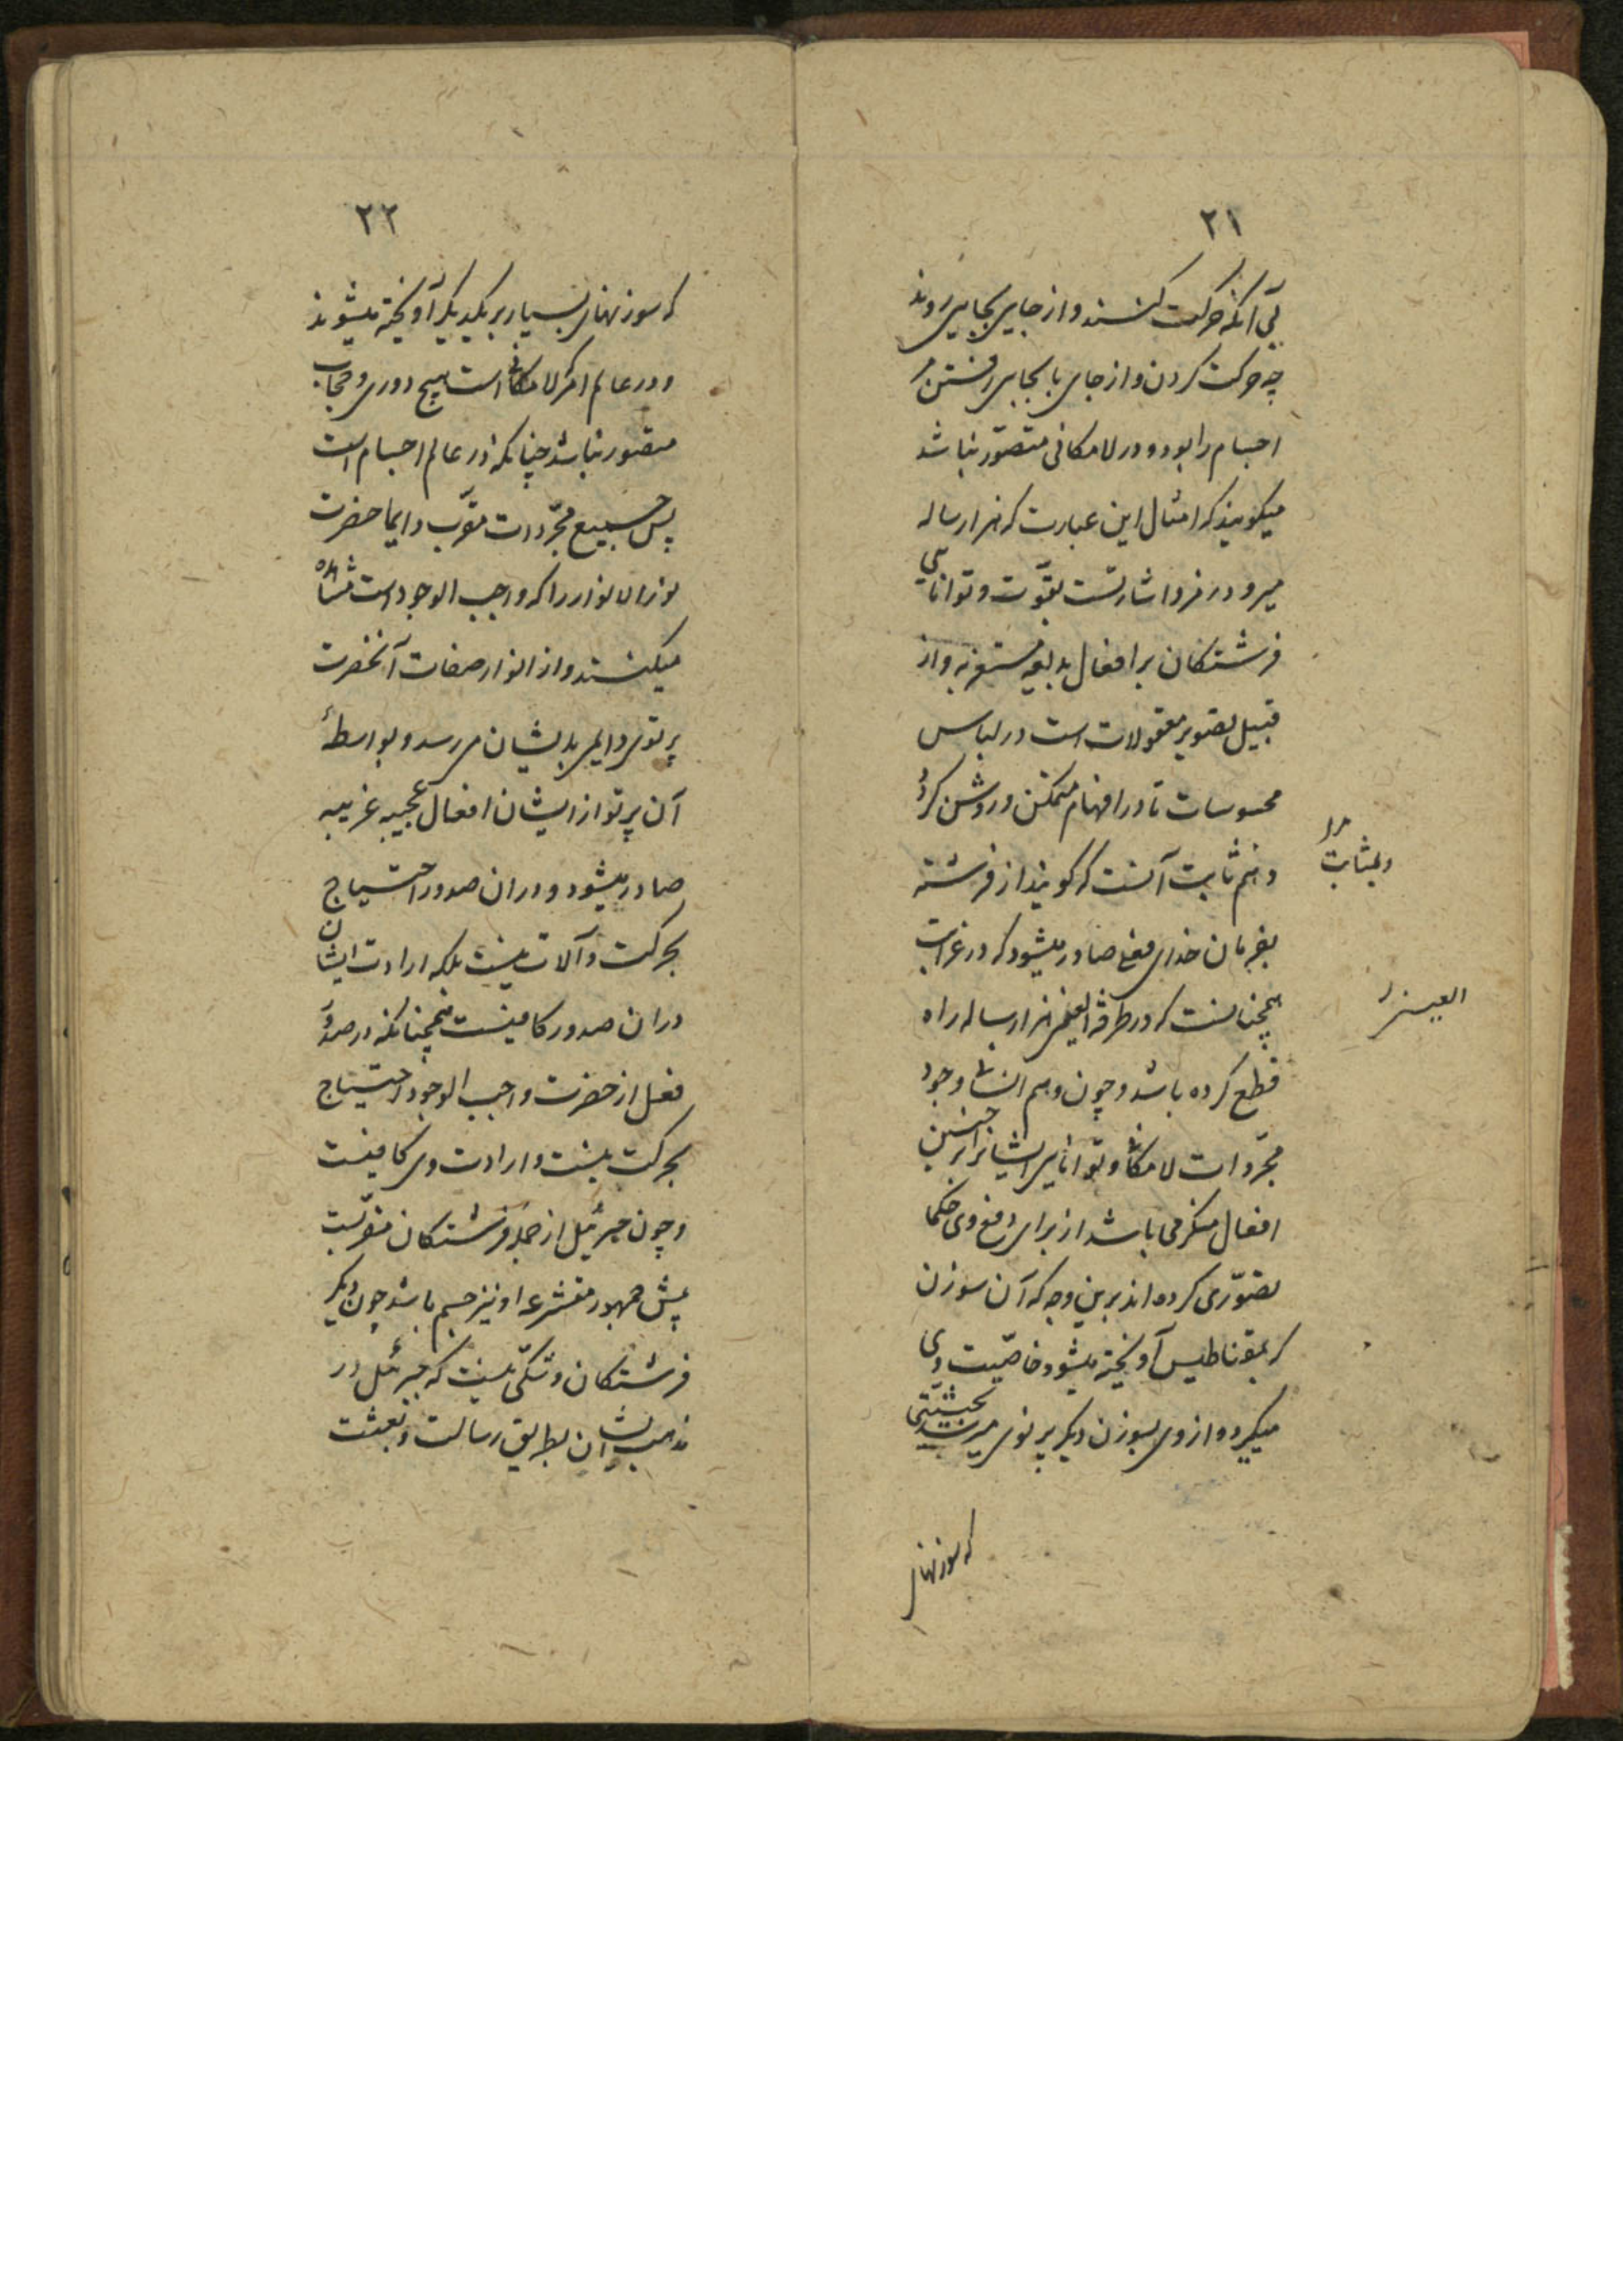 ۲۱
بی آنکه حرکت کنند و از جایی بجایی روند
چه حرکت کردن و از جای بابجایی رفتن مر
اجسام را بود و در لامکانی متصوّر نباشد
میکویند که امثال این عبارت که هزار ساله
میرود در فرو اشارتست بقوّت و توانایی
فرشتکان بر افعال بدیعه مستغربه و از
قبیل تصویر معقولات است در لباس
محسوسات تا در افهام متمکن و روشن کردد
و بمثابت آنست که کویند از فرشته
بفرمان خدای فعلی صادر میشود که در غرابت
همچنانست که در طرفة العین هزار ساله راه
قطع کرده باشد و چون وهم انسانی وجود
مجرّدات لامکانی و توانایی ایشانرا بر چنین
افعال منکر می باشد از برای دفع وی حکما
تصوّری کرده اند برین وجه که آن سوزن
که بمقناطیس آویخته میشود خاصّیت وی
میکیرد و از وی بسوزن دیکر پرتوی میرسد بحیثیتی
و بمثابت
العین
که سوزنهای
۲۲
که سوزنهای بسیار بر یکدیکر آویخته میشوند
و در عالم امر که لامکانی است هیچ دوری و حجاب
متصور نباشد چنانکه در عالم اجسام است
پس جمیع مجرّدات مقرّب دایما حضرت
نور الانوار را که واجب الوجود است مشاهده
میکنند و از انوار صفات آنحضرت
پرتوی دایمی بدیشان می رسد و بواسطهٔ
آن پرتو از ایشان افعال عجیبه غریبه
صادر میشود و در ان صدور احتیاج
بحرکت و آلات نیست بلکه ارادت ایشان
در ان صدور کافیست همچنانکه در صدور
فعل از حضرت واجب الوجود احتیاج
بحرکت نیست و ارادت وی کافیست
و چون جبرئیل از جمله فرشتکان مقرّبست
پیش جمهور متشرعه او نیز جسم باشد چون دیکر
فرشتکان و شکّی نیست که جبرئیل در
مذهب ایشان بطریق رسالت و بعثت